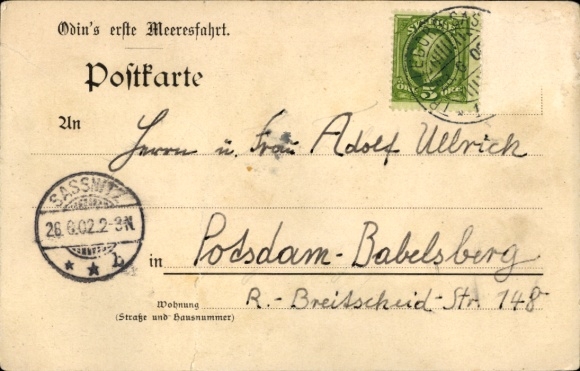 Odin's erste Meeresfahrt.
Postkarte
SVERIGE
5 ÖRE
An
Herrn u. Frau Adolf Ullrich
SASSNITZ
26.6.02.2-3N.
* * b
in Potsdam-Babelsberg
Wohnung
(Straße und Hausnummer)
R.-Breitscheid-Str. 148